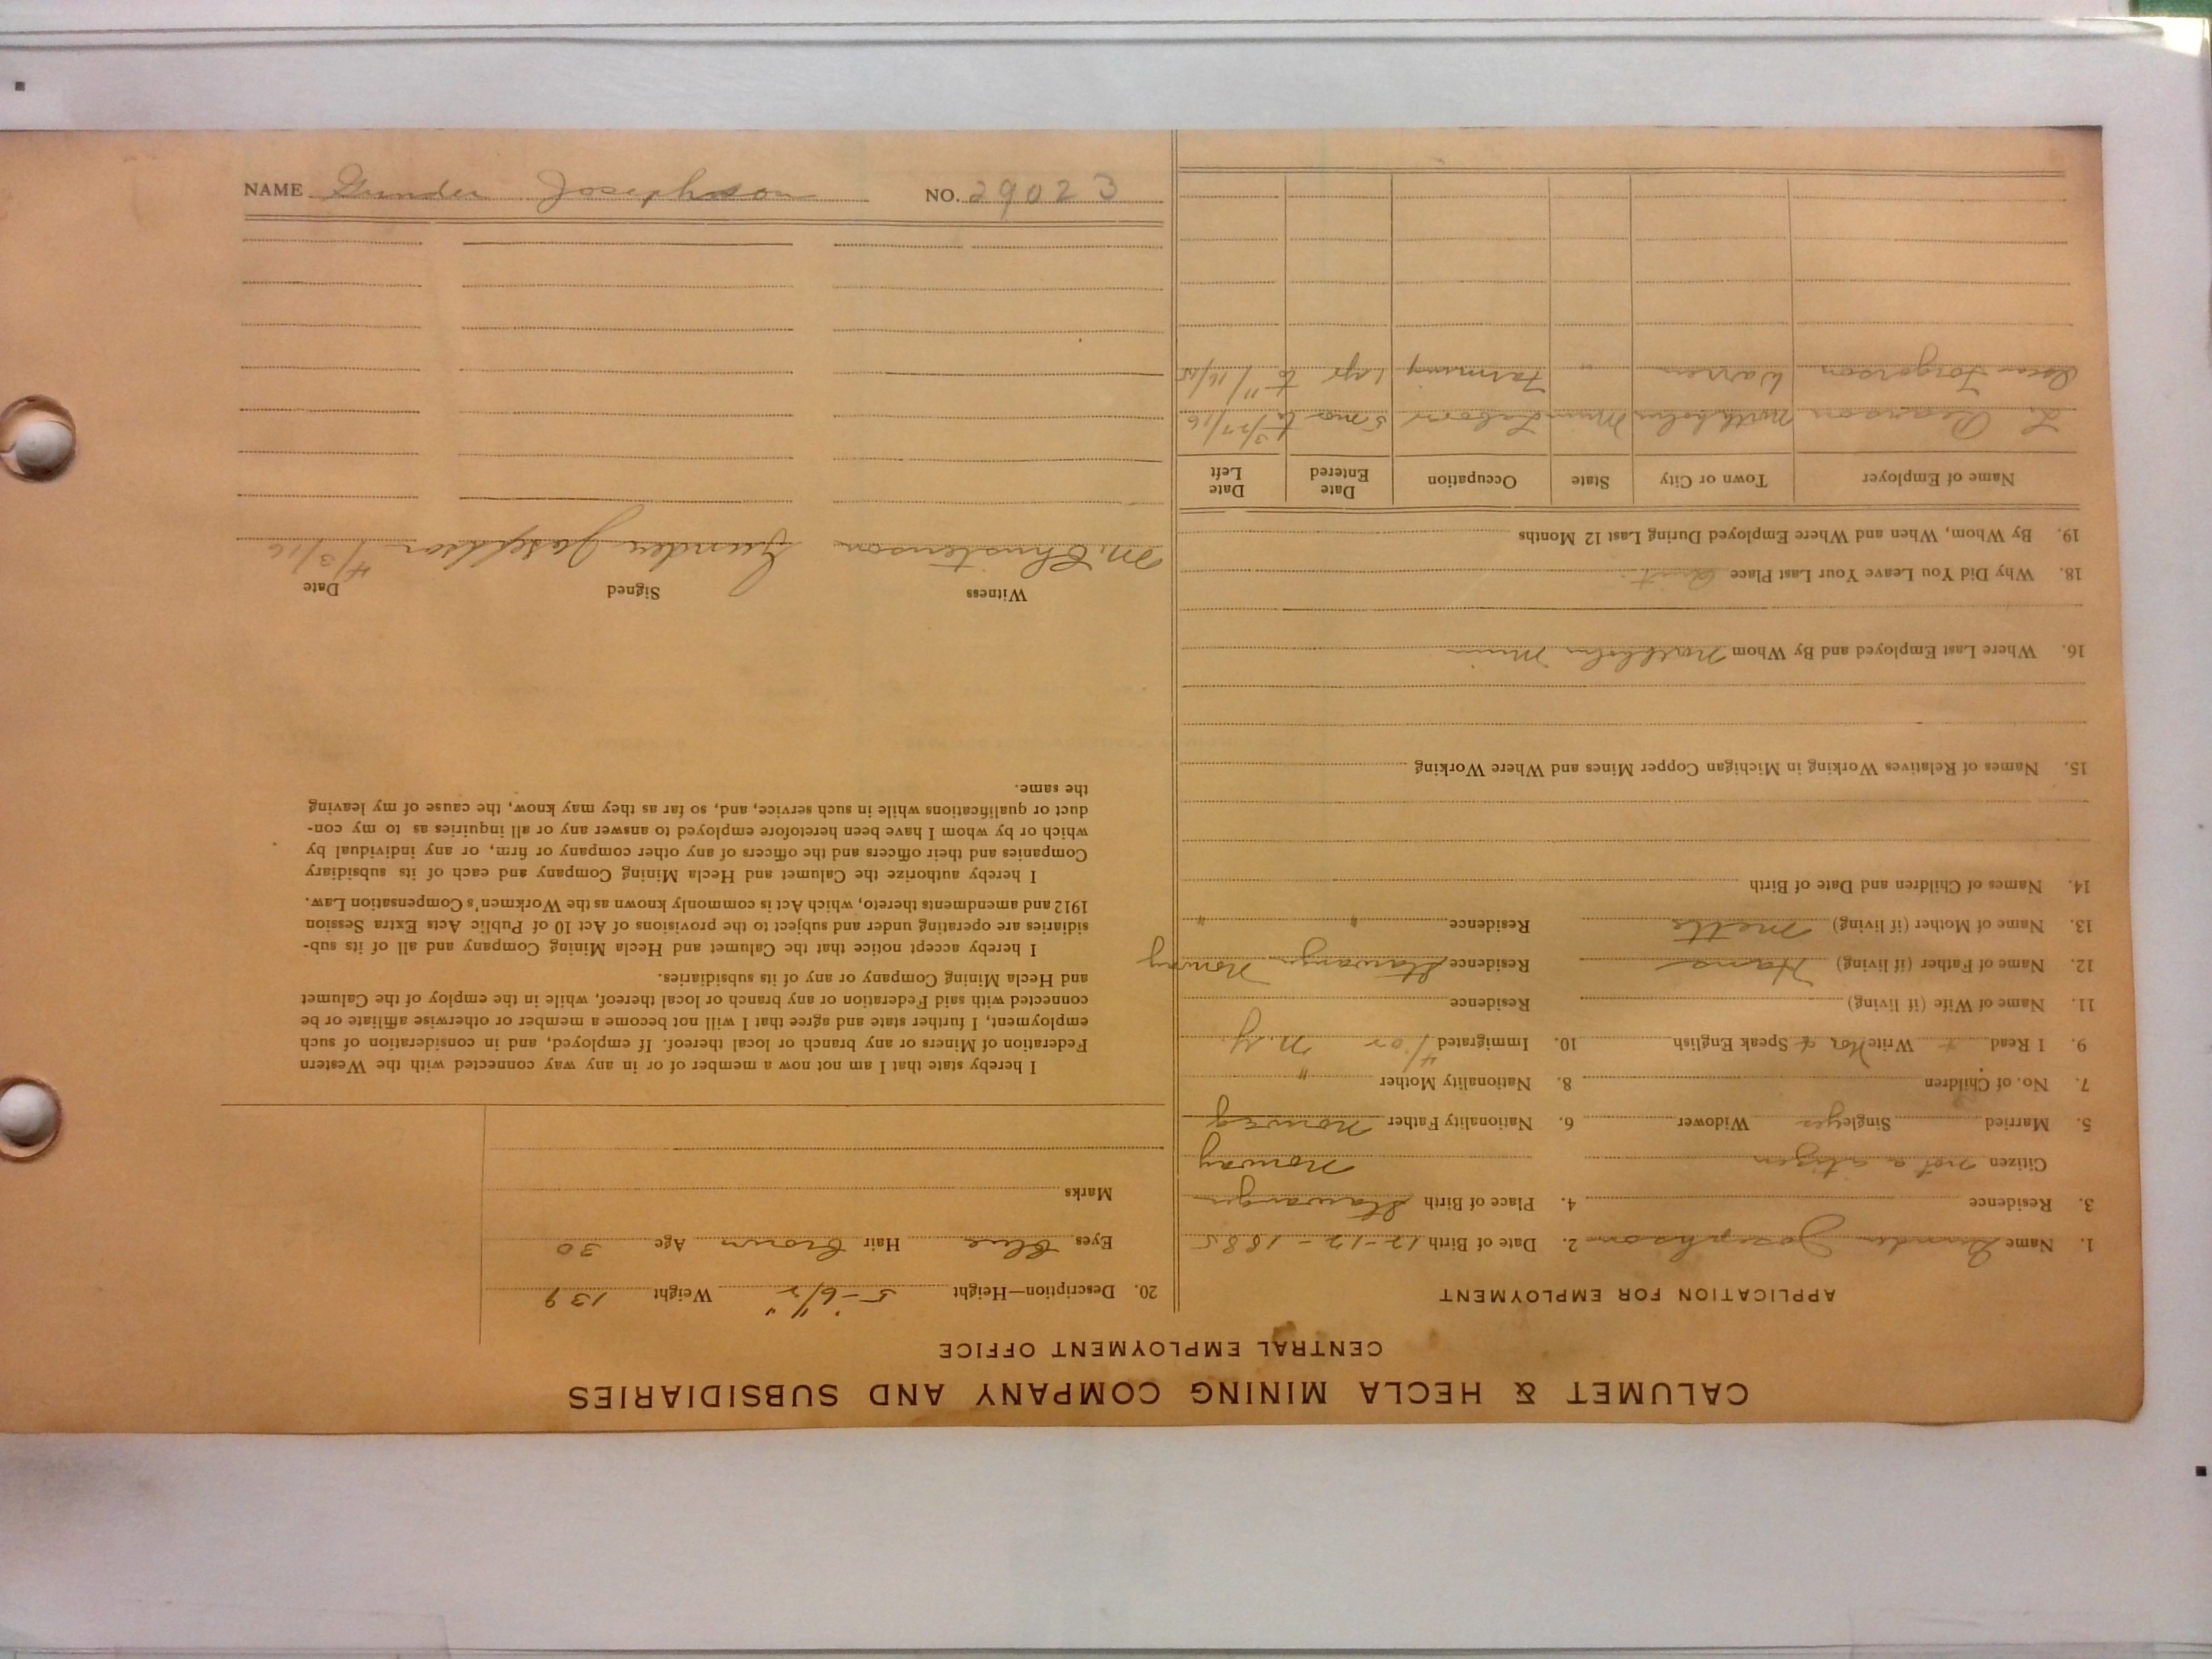 CALUMET & HECLA MINING COMPANY AND SUBSIDIARIES
CENTRAL EMPLOYMENT OFFICE
APPLICATION FOR EMPLOYMENT
1. Name Gunder Josephson 2. Date of Birth 12-12-1885
3. Residence 4. Place of Birth Stavanger
Citizen not a citizen Norway
5. Married Single yes Widower 6. Nationality Father Norweg
7. No. of Children 8. Nationality Mother "
9. I Read + Write Nor + Speak English 10. Immigrated N.Y.
11. Name of Wife (if living) Residence
12. Name of Father (if living) Hans Residence Stavanger Norway
13. Name of Mother (if living) Mette Residence " "
14. Names of Children and Date of Birth
15. Names of Relatives Working in Michigan Copper Mines and Where Working
16. Where Last Employed and By Whom Minn
18. Why Did You Leave Your Last Place Quit
19. By Whom, When and Where Employed During Last 12 Months
Name of Employer Town or City State Occupation Date Entered Date Left
L. Pearson Minn Labor 5 mos to 3/27/16
Torgerson Warren " Farming 1 yr to 11/15
20. Description—Height 5'-6 1/2" Weight 139
Eyes Blue Hair Brown Age 30
Marks
I hereby state that I am not now a member of or in any way connected with the Western
Federation of Miners or any branch or local thereof. If employed, and in consideration of such
employment, I further state and agree that I will not become a member or otherwise affiliate or be
connected with said Federation or any branch or local thereof, while in the employ of the Calumet
and Hecla Mining Company or any of its subsidiaries.
I hereby accept notice that the Calumet and Hecla Mining Company and all of its sub-
sidiaries are operating under and subject to the provisions of Act 10 of Public Acts Extra Session
1912 and amendments thereto, which Act is commonly known as the Workmen's Compensation Law.
I hereby authorize the Calumet and Hecla Mining Company and each of its subsidiary
Companies and their officers and the officers of any other company or firm, or any individual by
which or by whom I have been heretofore employed to answer any or all inquiries as to my con-
duct or qualifications while in such service, and, so far as they may know, the cause of my leaving
the same.
Witness Signed Date
M. Christenson Gunder Josephson 4/3/16
NAME Gunder Josephson NO. 29023